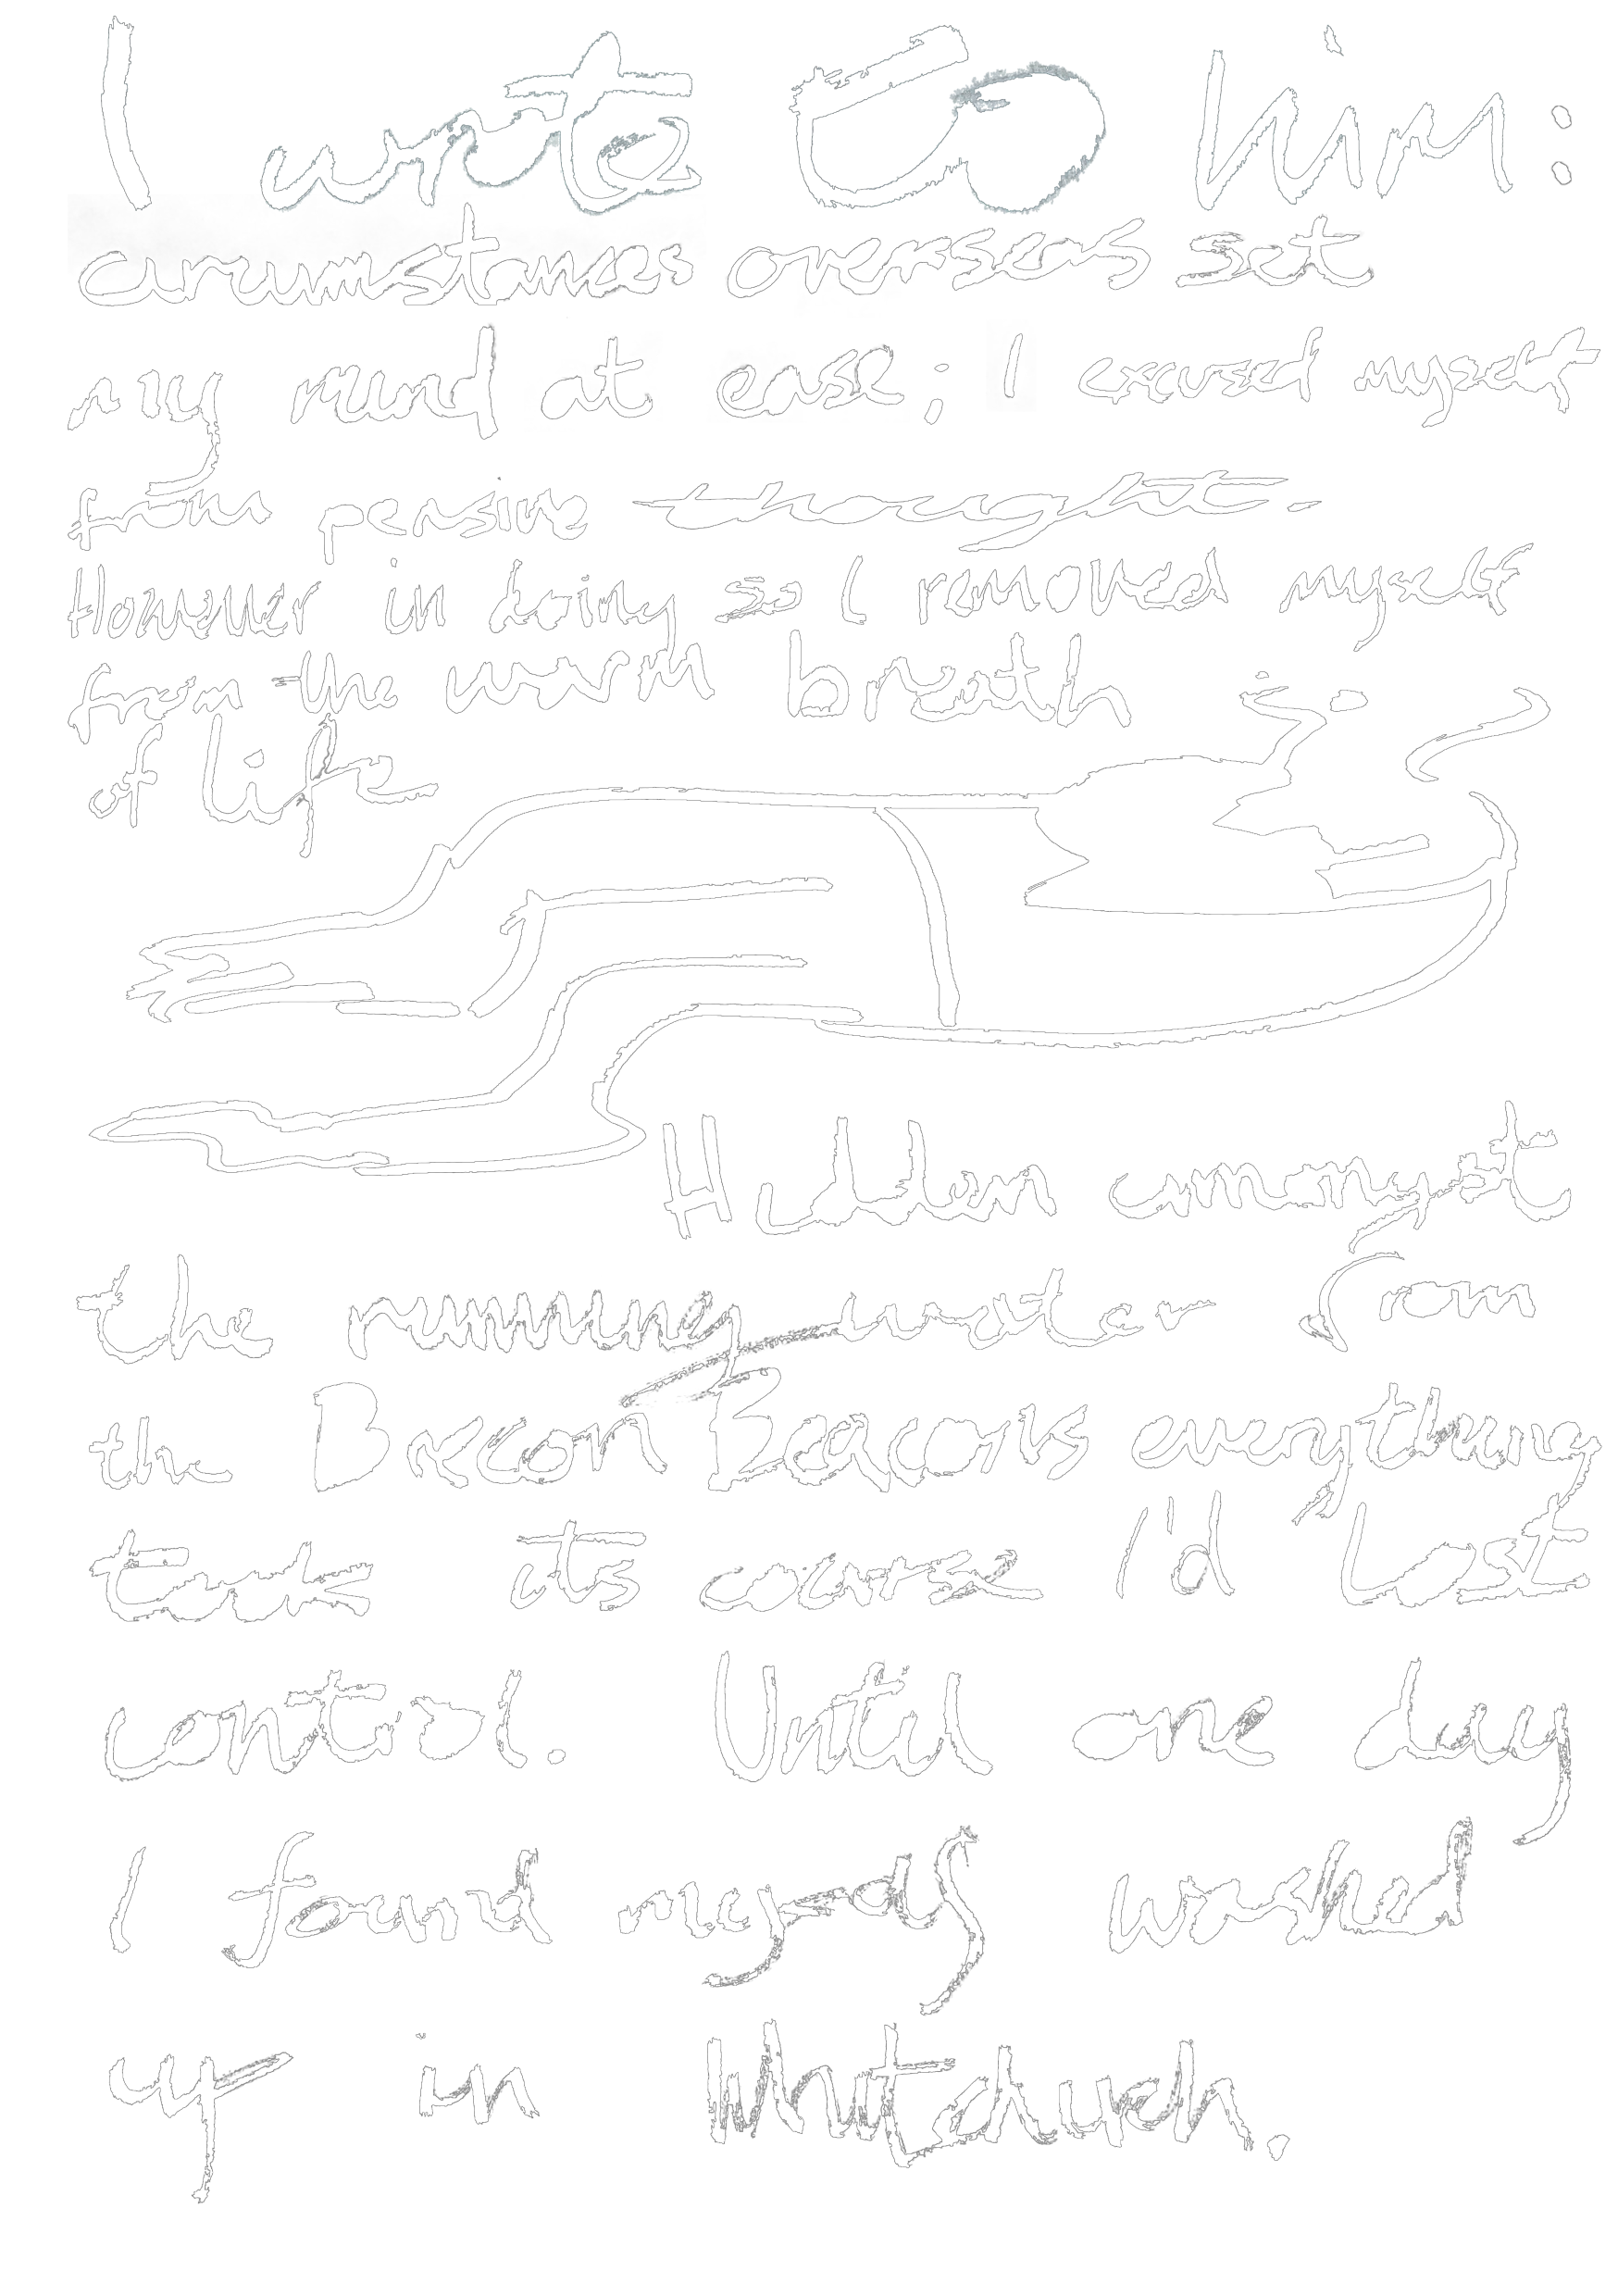 I wrote to him:
circumstances overseas set
my mind at ease; I excused myself
from pensive thought.
However in doing so I removed myself
from the warm breath
of life
Hidden amongst
the running water from
the Brecon Beacons everything
took its course I'd lost
control. Until one day
I found myself washed
up in Whitchurch.